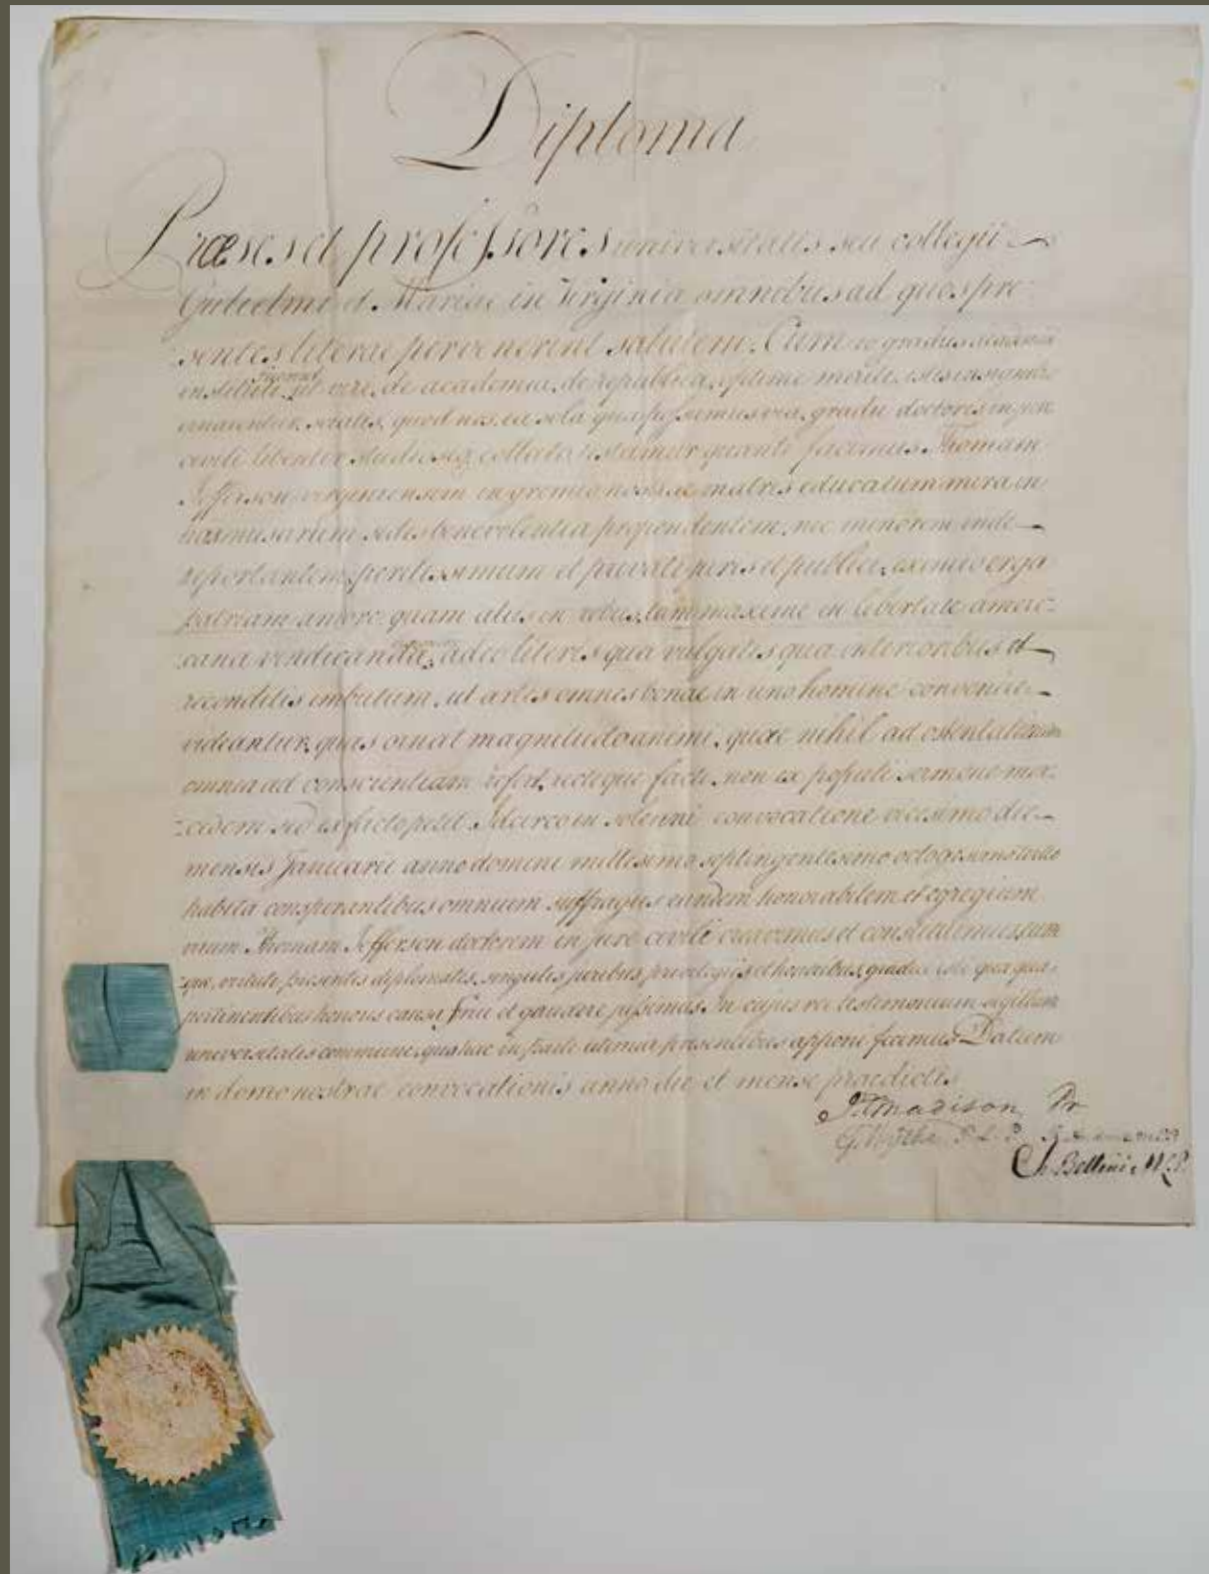 Diploma
Præses et professores universitatis seu collegii
Gulielmi et Mariae in Virginia omnibus ad quos præ
sentes literae pervenerint salutem. Cum eo gradus academici
instituti fuerint, ut viri, de academia, de republica, optime meriti,
ornarentur, sciatis, quod nos, ea sola qua possumus via, gradu doctoris in jure
civili libenter studioseq collato, testamur quanti facimus Thomam
Jefferson, virginiensem in gremio nostrae matris educatum mira in
has musarum sedis benevolentia propendentem, nec minorem inde
reportantem, peritissimum et privati juris et publici, eximio erga
patriam amore, quam aliis in rebus, tum maxime in libertate ameri:
:cana vindicanda, adeo literis qua vulgatis qua interioribus et
reconditis imbutum, ut artes omnes bonae in uno homine convenire
videantur, quas ornat magnitudo animi, quae nihil ad ostentationem
omnia ad conscientiam refert, recteque facti, non ex populi sermone mer:
:cedem sed ex facto petit. Idcirco in solenni convocatione vicesimo die
mensis Januarii anno domini millesimo septingentesimo octogesimo tertio
habita conspirantibus omnium suffragiis eundem honorabilem et egregium
virum Thomam Jefferson doctorem in jure civili creavimus et constituimus, eum
:que, virtute presentis diplomatis, singulis juribus, privilegiis et honoribus, gradui isti qua qua:
pertinentibus honoris causa, frui et gaudere jussimus. In cujus rei testimonium sigillum
universitatis commune, quo hac in parte utimur presentibus apponi fecimus Datum
in domo nostrae convocationis anno die et mense praedictis
J. Madison, Pr
G. Wythe P. L. P. R. Andrews
Ch. Bellini